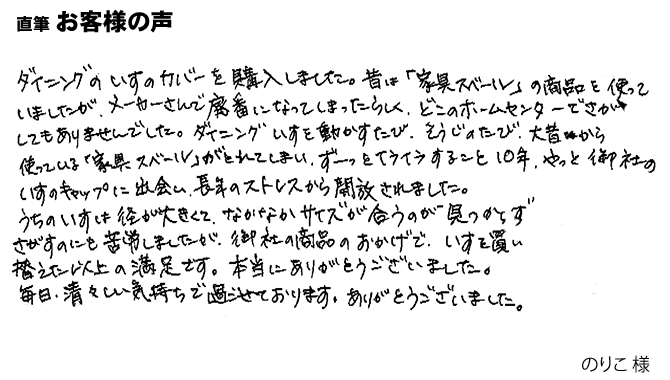 直筆 お客様の声
ダイニングのいすのカバーを購入しました。昔は「家具スベール」の商品を使って
いましたが、メーカーさんで廃番になってしまったらしく、どこのホームセンターでさがす
してもありませんでした。ダイニングいすを動かすたび、そうじのたび、大昔から
使っている「家具スベール」がとれてしまい、ず〜っとイライラすること10年、やっと御社の
いすのキャップに出会い、長年のストレスから開放されました。
うちのいすは径が大きくて、なかなかサイズが合うのが見つからず
さがすのにも苦労しましたが、御社の商品のおかげで、いすを買い
替えた以上の満足です。本当にありがとうございました。
毎日、清々しい気持ちで過ごせております。ありがとうございました。
のりこ 様